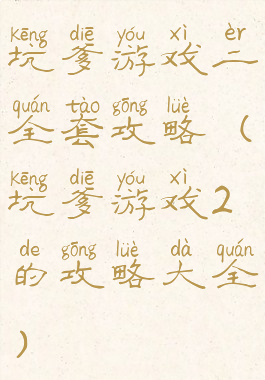 kēng diē yóu xì èr
坑爹游戏二
quán tào gōng lüè
全套攻略（
kēng diē yóu xì
坑爹游戏2
de gōng lüè dà quán
的攻略大全
）